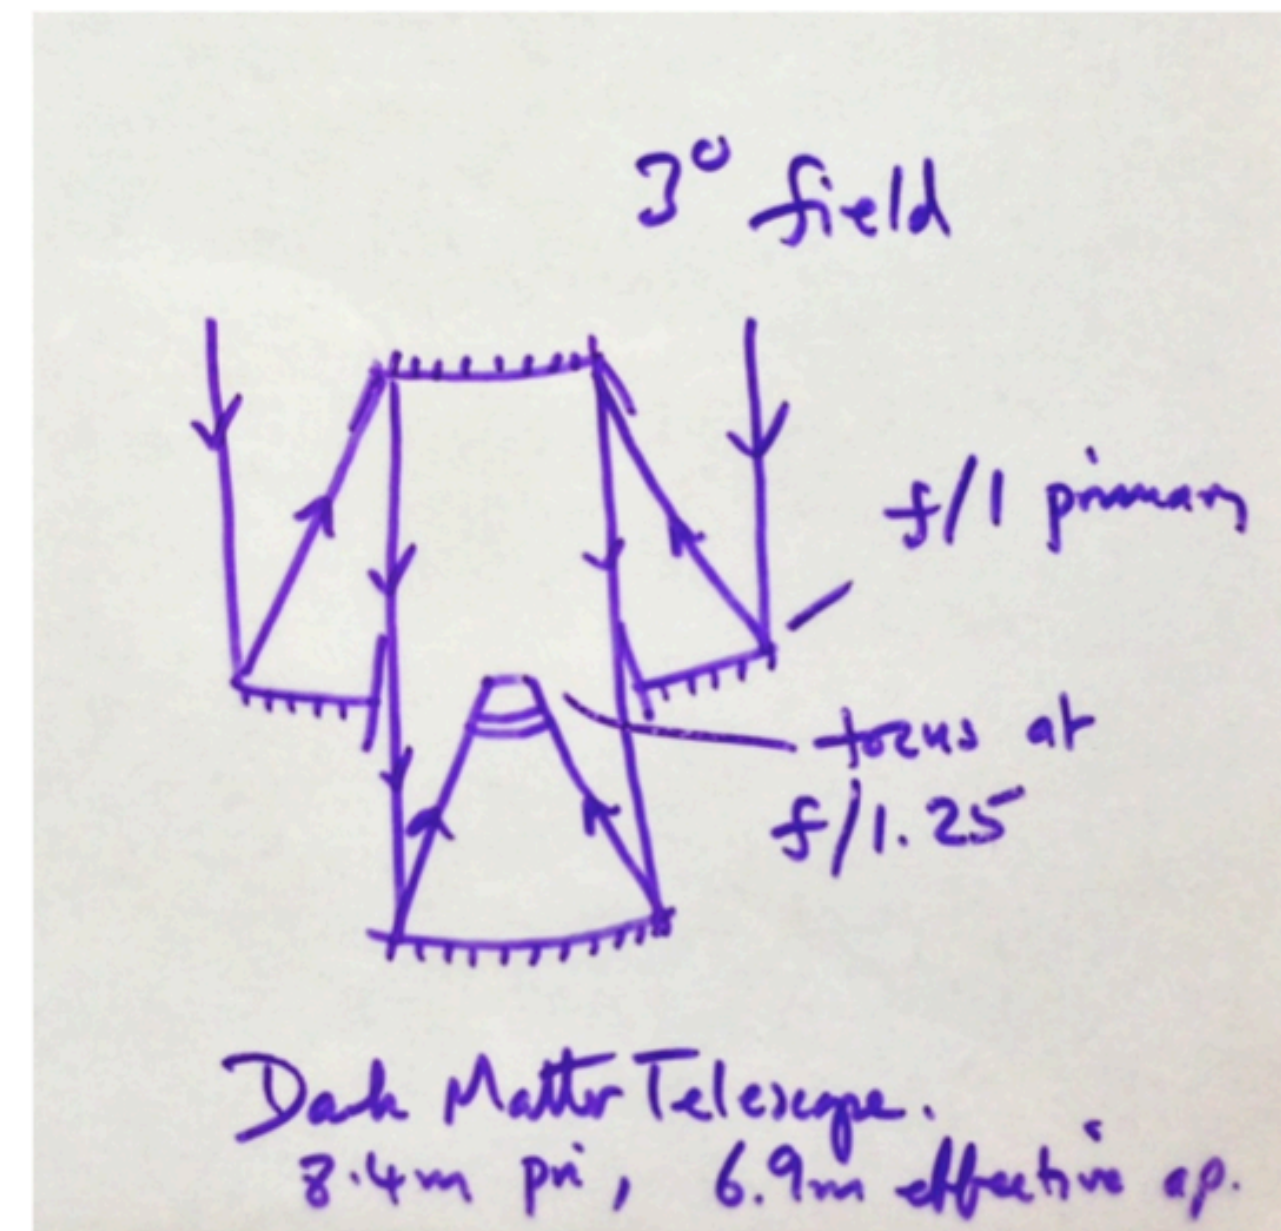 3° field
f/1 primary
focus at
f/1.25
Dark Matter Telescope.
8.4m pri, 6.9m effective ap.